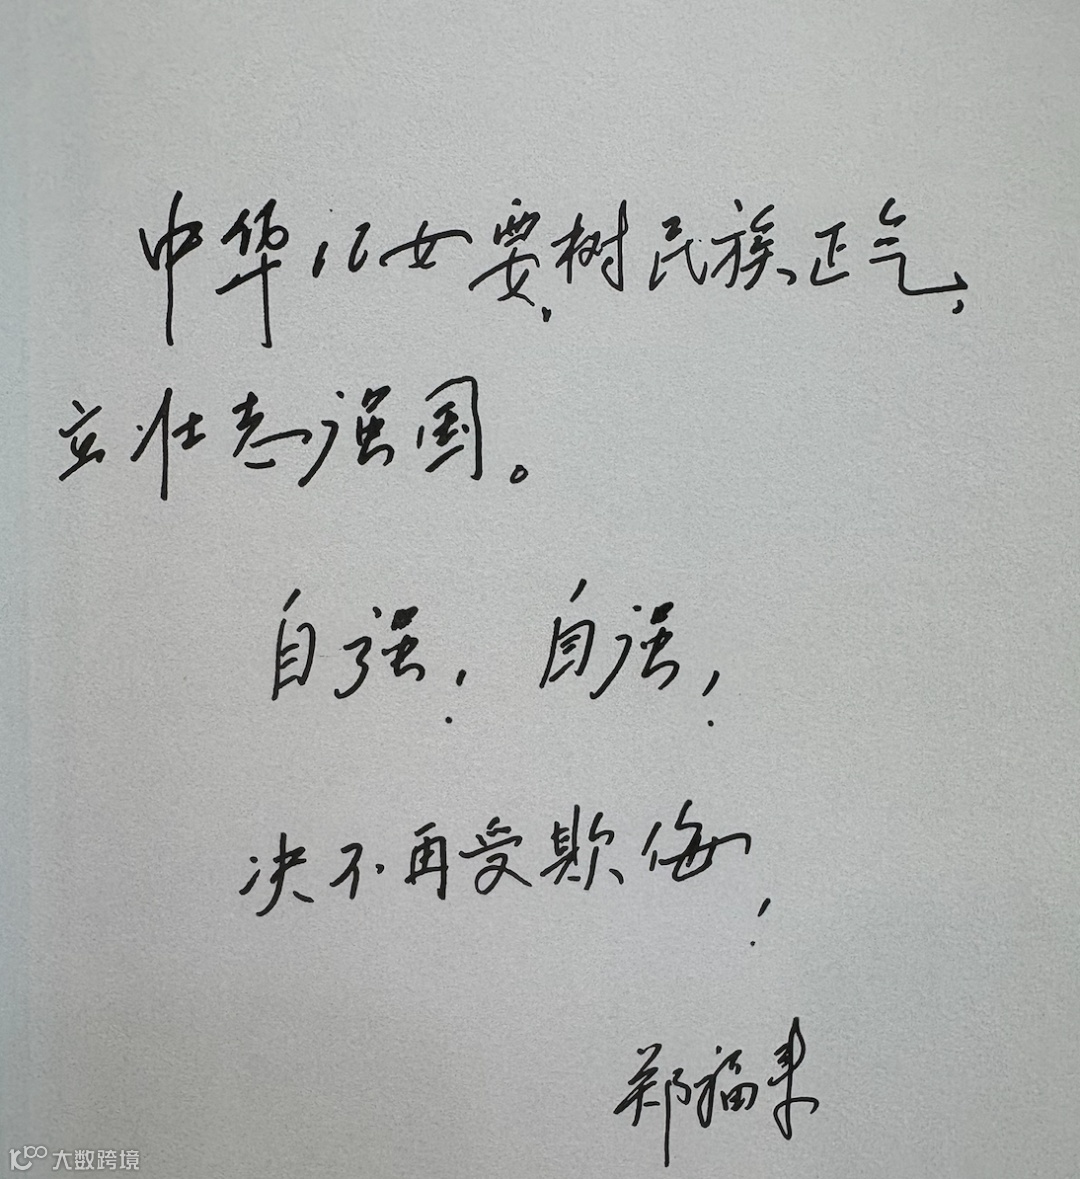 中华儿女要树民族正气,
立壮志强国。
自强! 自强!
决不再受欺侮!
郑福来
大数跨境